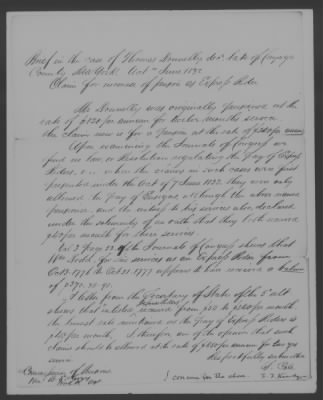 Brief in the case of Thomas Donnelly dec'd late of Cayuga
County New York. Act 7th June 1832
Claim for increase of pension as Express Rider
Mr Donnelly was originally pensioned at the
rate of $120 per annum for twelve months service
the claim now is for a pension at the rate of per annum
Upon examining the Journals of Congress we
find no law or Resolution regulating the pay of Express
Riders, when the claims in such cases were first
presented under the Act of 7 June 1832, they were only
allowed the pay of
pensioner, and the his services also declared
under the solemnity of an oath that they both received
per month for their services.
Vol 3 Page 53 of the Journals of Congress shows that
Wm Dodd, for his services as an Express Rider from
Oct 13. 1776 to Oct 21. 1777 appears to have received a balance
of
A letter from the Secretary of State of the 5th ult
shows that received from $20 to per month
the lowest rate mentioned as the pay of Express Riders is
per month. I therefore am of the opinion that such
claims should be allowed at the rate of per annum for two yrs
service
Respectfully submitted
Commissioner of Pensions
I concur for the above.